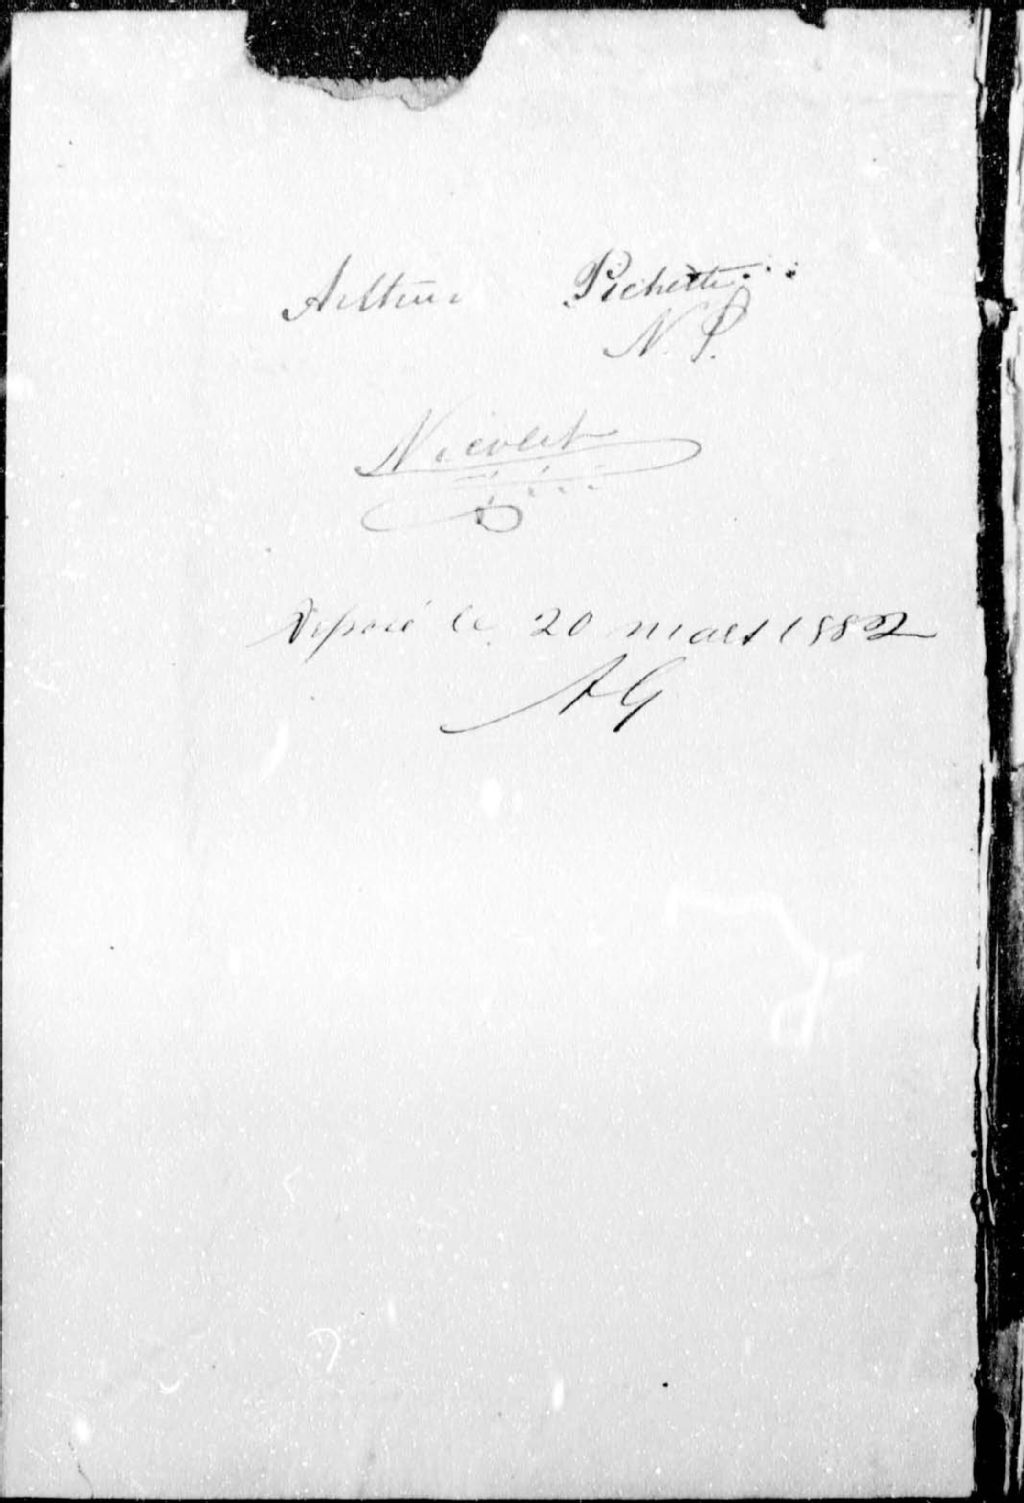 Arthur Pichette
N. P.
Nicolet
Déposé le 20 mars 1882
A G